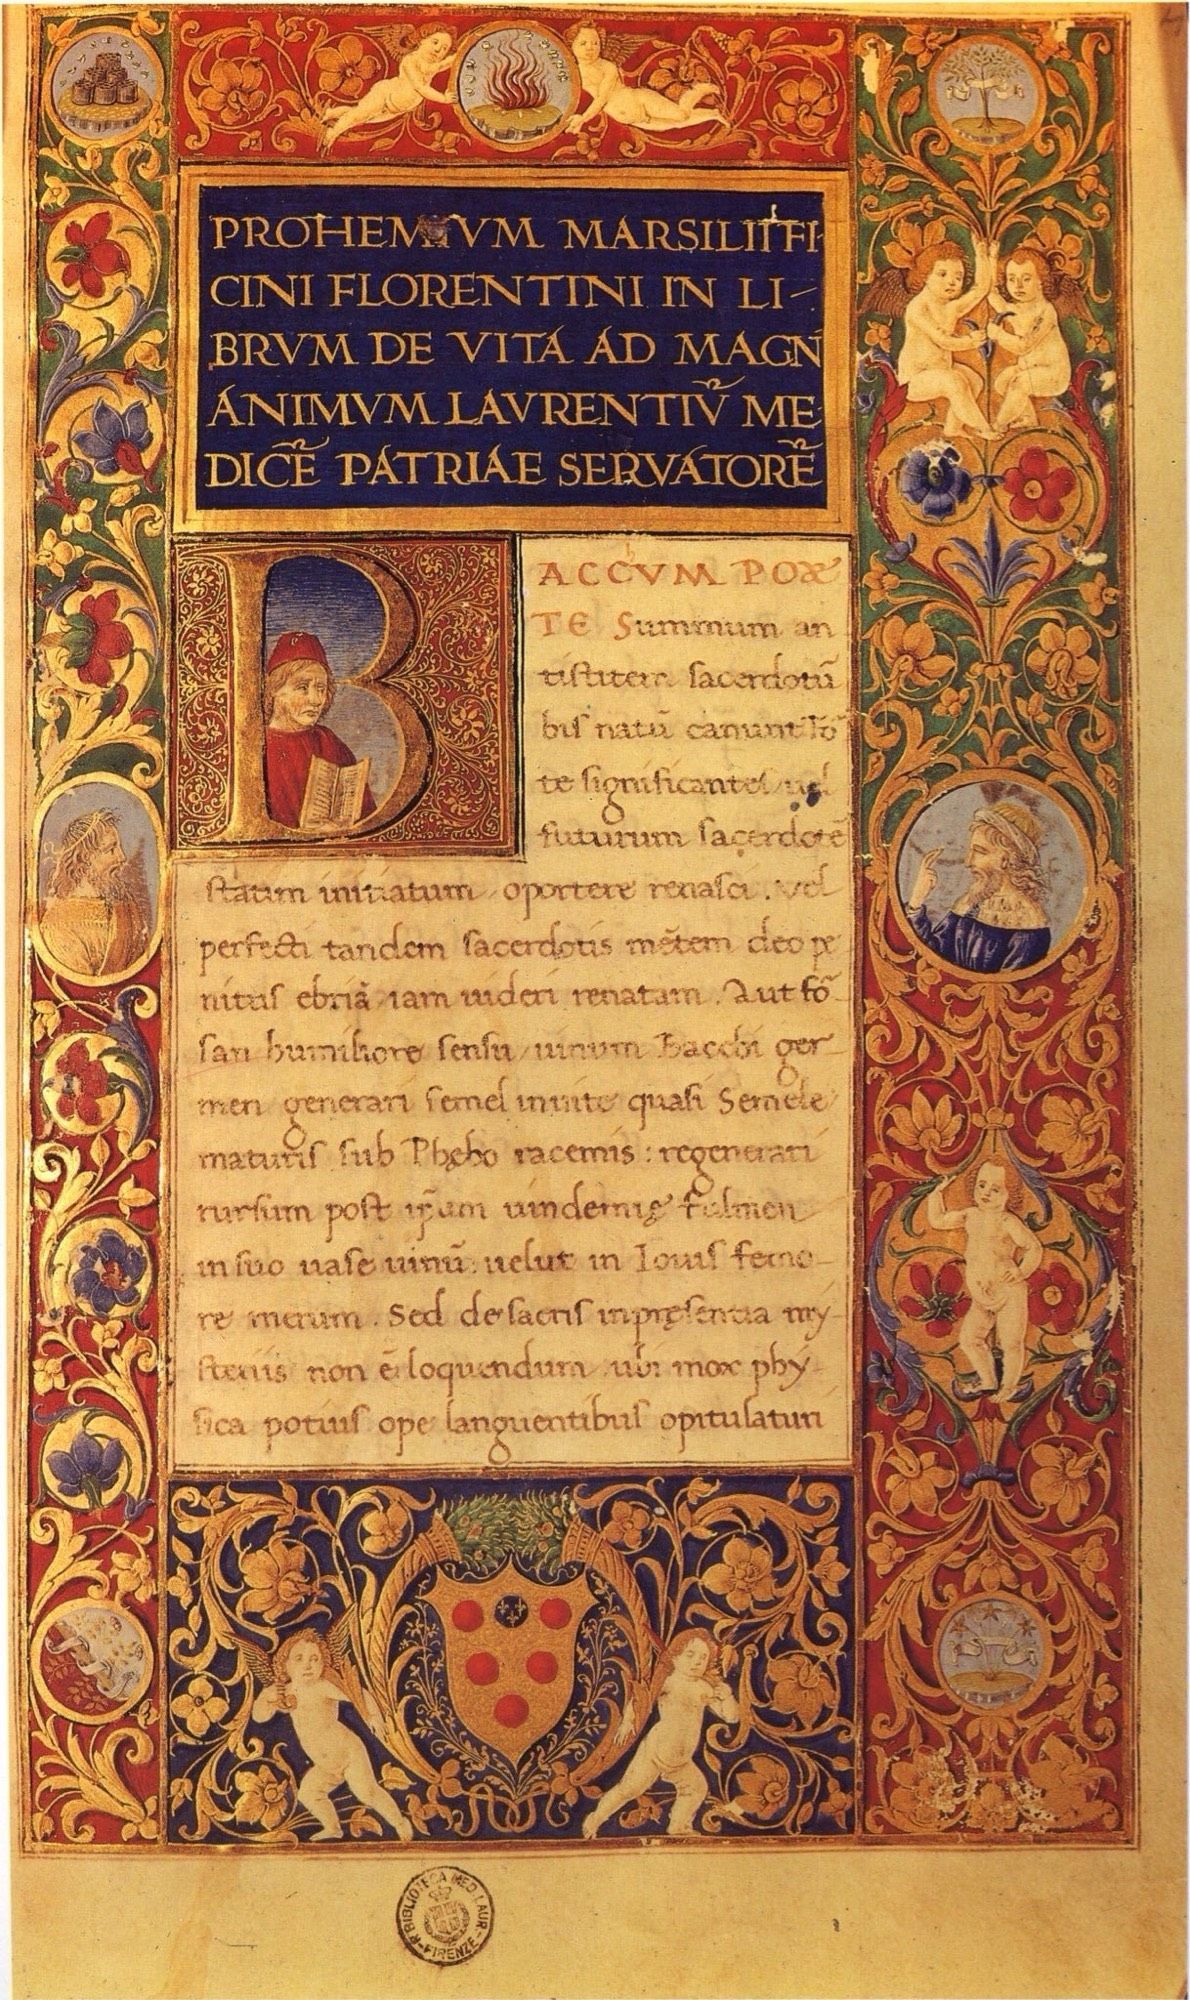 PROHEMIVM MARSILII FI-
CINI FLORENTINI IN LI-
BRVM DE VITA AD MAGN
ANIMVM LAVRENTIṼ ME-
DICẼ PATRIAE SERVATORẼ
BACCVM POE
TE Summum an
tistitem sacerdotũ
bis natũ canunt fõ
te significantes uel
futurum sacerdotẽ
statim initiatum oportere renasci. Vel
perfecti tandem sacerdotis mẽtem deo pe
nitus ebriã iam uideri renatam. Aut fõ-
san humiliore sensu uinum Bacchi ger-
men generari semel in uite quasi Semele
maturis sub Phębo racemis: regenerari
rursum post ip̃um uindemię fulmen
in suo uase uinũ: uelut in Iouis femo-
re merum. Sed de sacris in pręsentia my-
steriis non ẽ loquendum ubi mox phy-
sica potius ope languentibus opitulaturi
R. BIBLIOTECA MED. LAUR.
FIRENZE